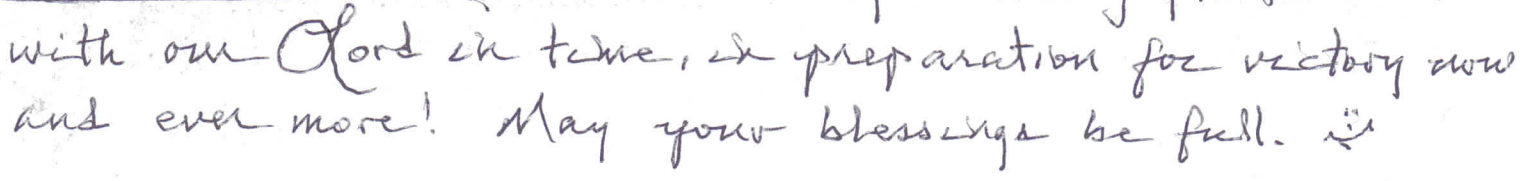 with our Lord in time, in preparation for victory now
and ever more! May your blessings be full. :)